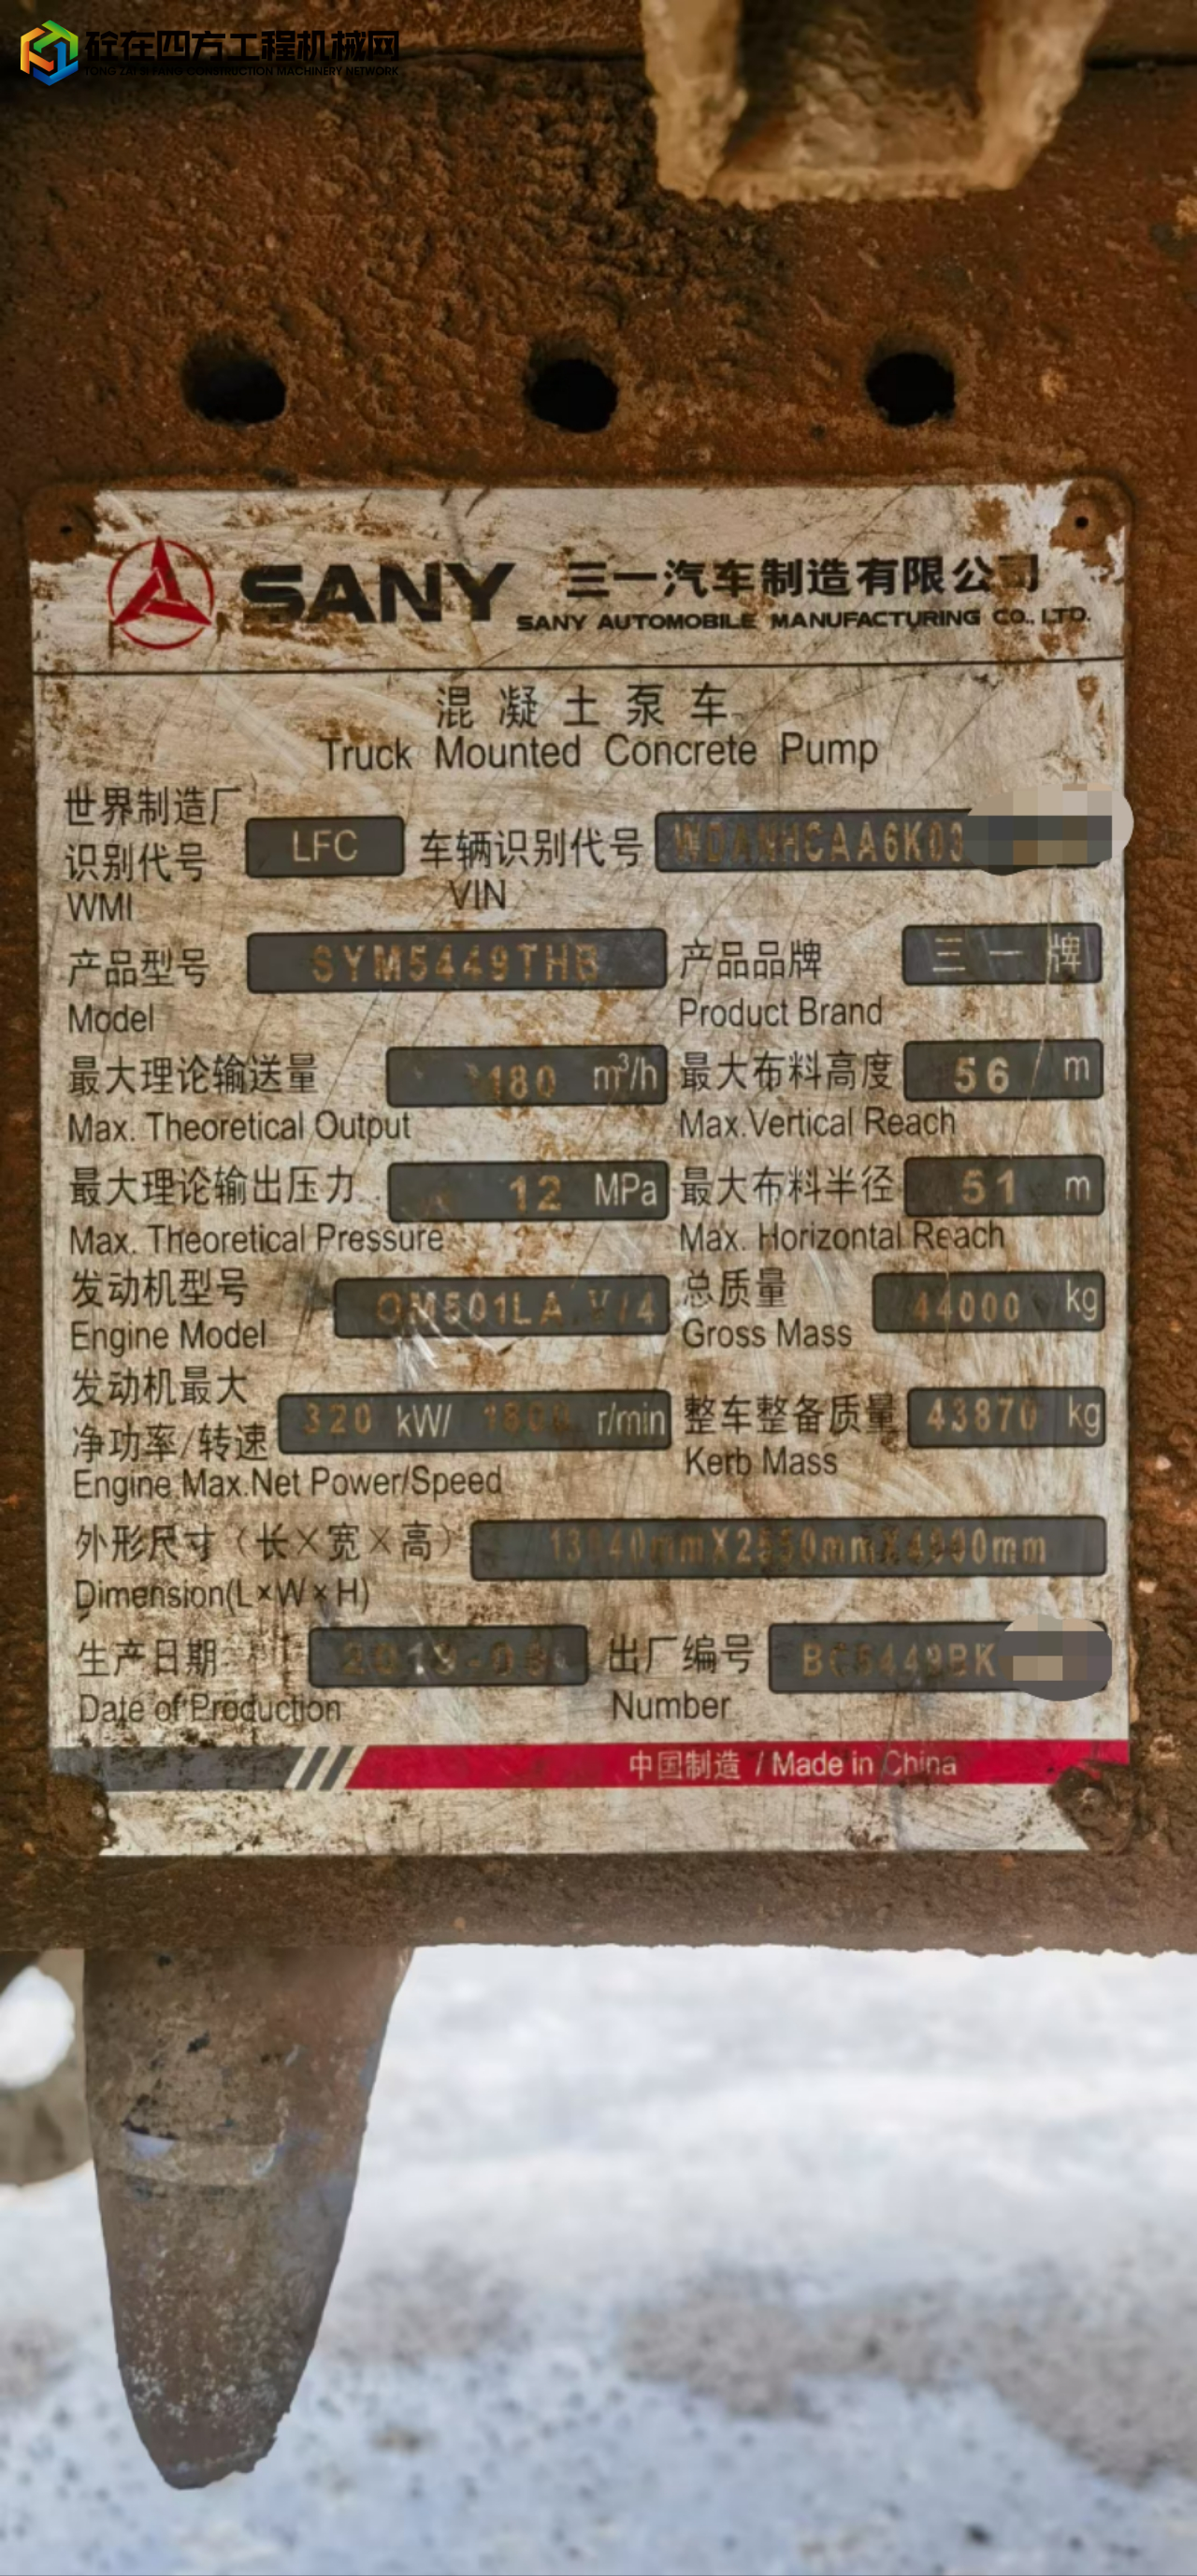 砼在四方工程机械网
TONG ZAI SI FANG CONSTRUCTION MACHINERY NETWORK
SANY 三一汽车制造有限公司
SANY AUTOMOBILE MANUFACTURING CO., LTD.
混凝土泵车
Truck Mounted Concrete Pump
世界制造厂
识别代号 LFC 车辆识别代号 WDANHCAA6K03
WMI VIN
产品型号 SYM5449THB 产品品牌 三一牌
Model Product Brand
最大理论输送量 180 m³/h 最大布料高度 56 m
Max. Theoretical Output Max.Vertical Reach
最大理论输出压力 12 MPa 最大布料半径 51 m
Max. Theoretical Pressure Max. Horizontal Reach
发动机型号 OM501LA V/4 总质量 44000 kg
Engine Model Gross Mass
发动机最大
净功率/转速 320 kW/ r/min 整车整备质量 43870 kg
Engine Max.Net Power/Speed Kerb Mass
外形尺寸（长×宽×高）
Dimension(L×W×H)
生产日期 出厂编号 BC5449BK
Date of Production Number
中国制造 / Made in China